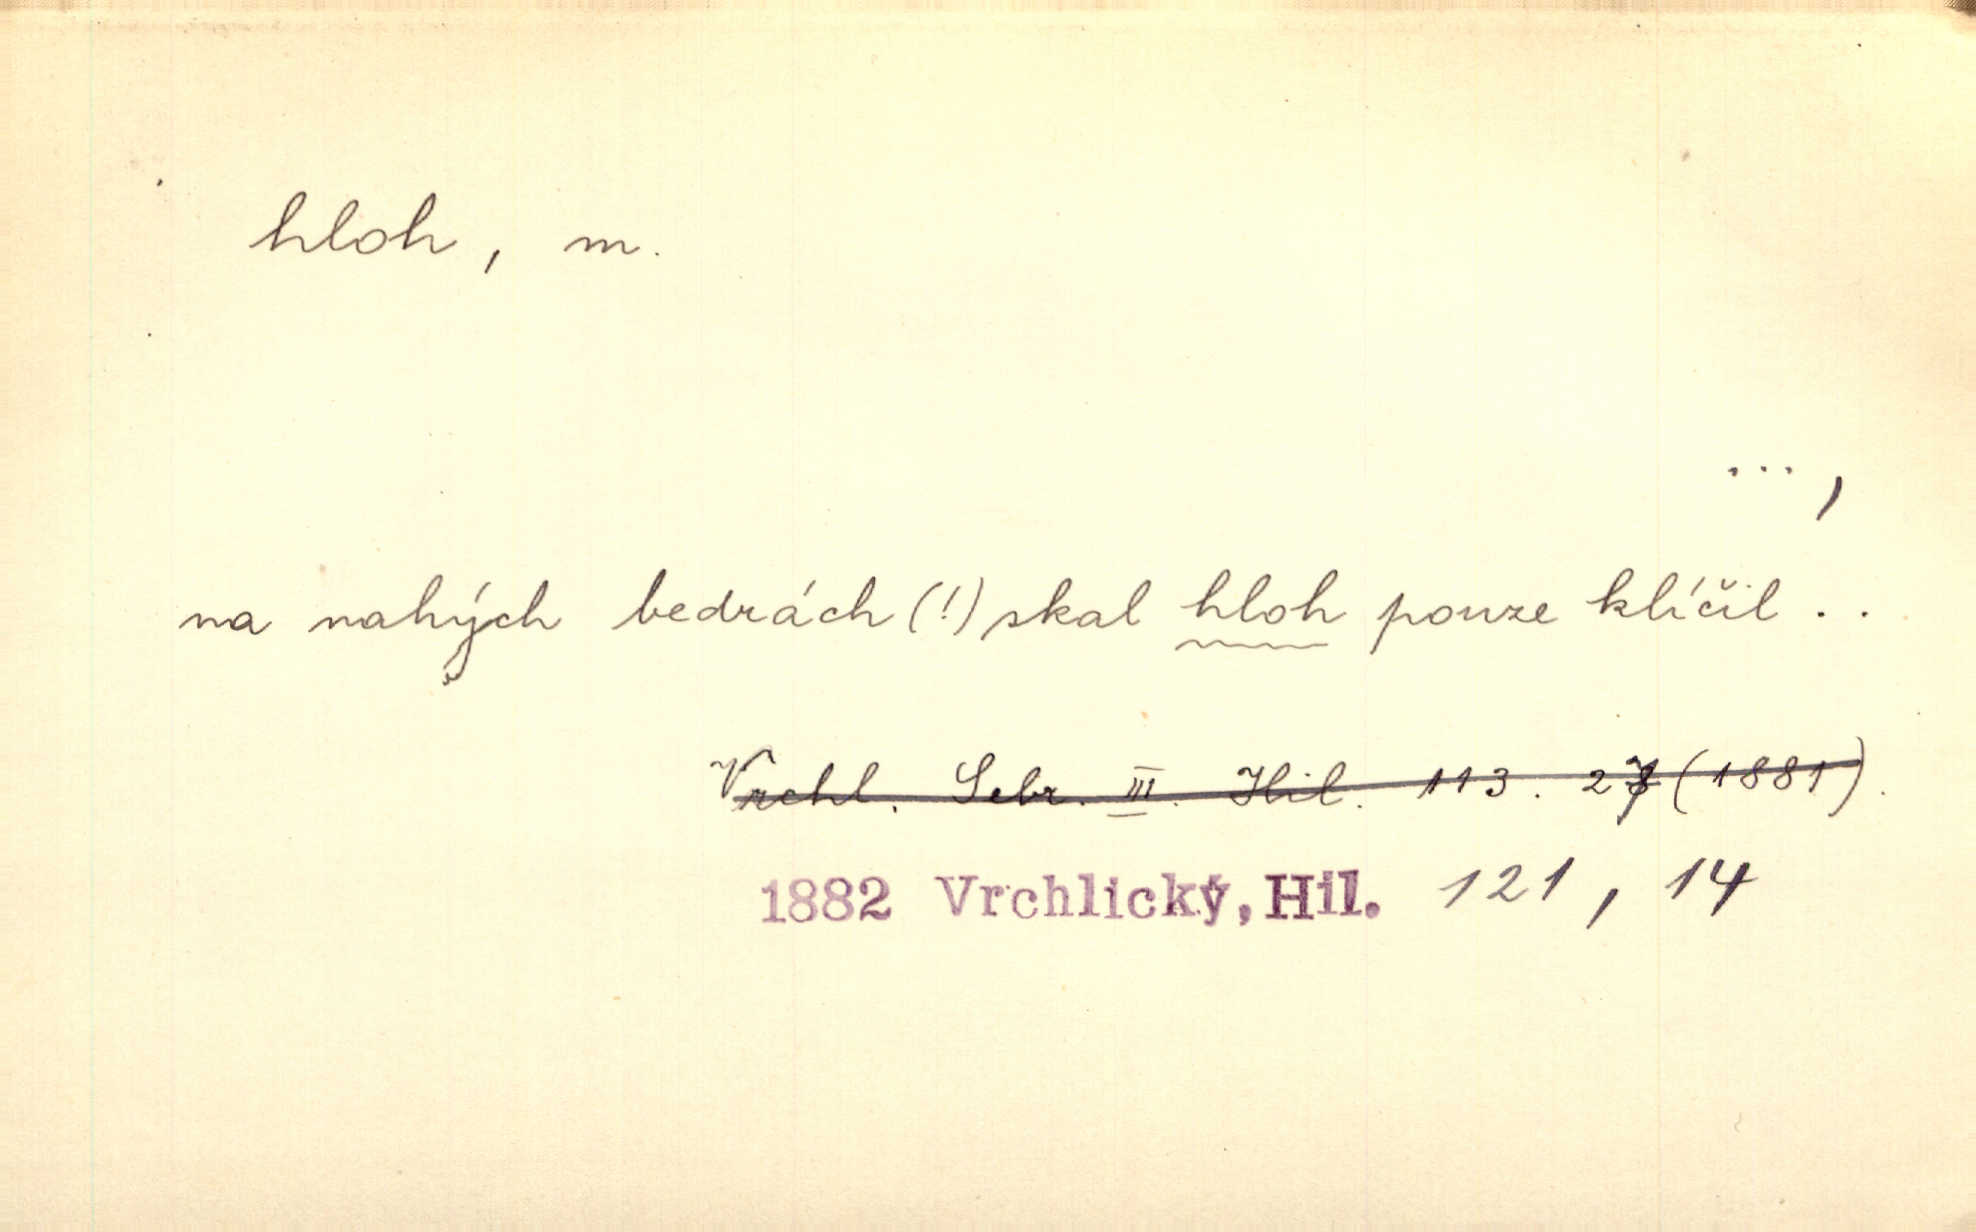 hloh, m.
...,
na nahých bedrách (!) skal hloh pouze klíčil ..
Vrchl. Sebr. III. Hil. 113. (1881).
1882 Vrchlický, Hil. 121, 14